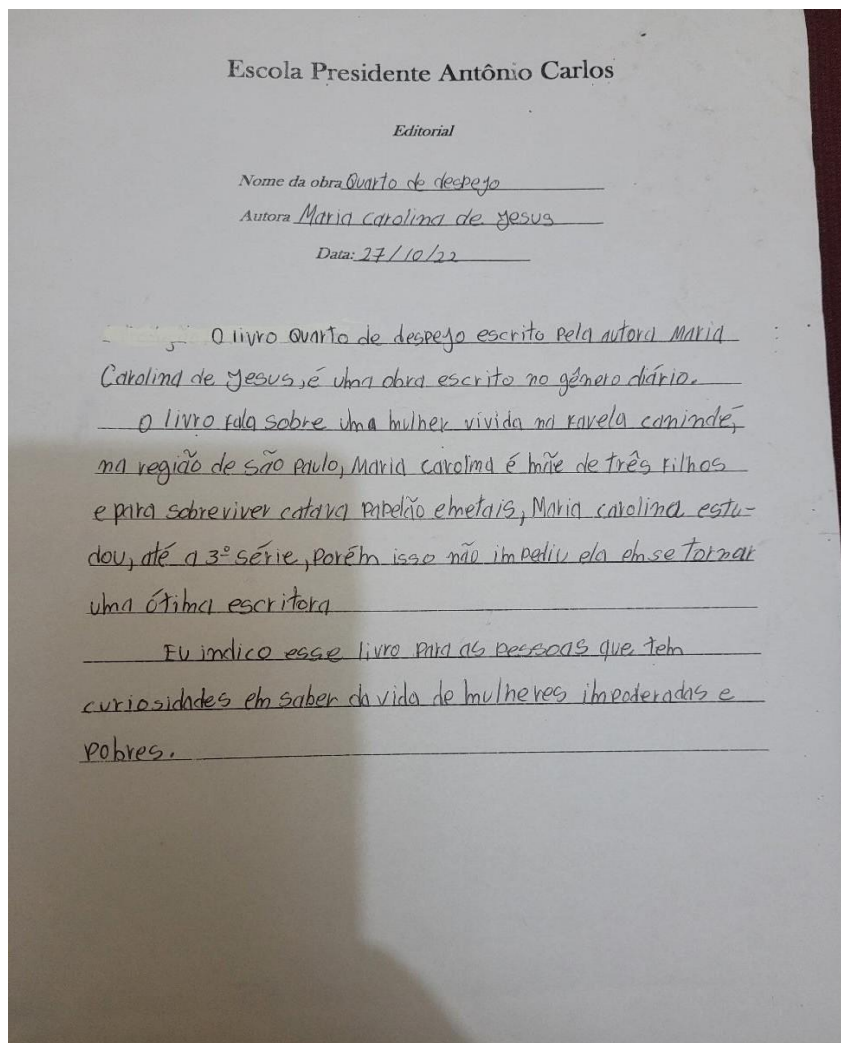 Escola Presidente Antônio Carlos
Editorial
Nome da obra Quarto de despejo
Autora Maria carolina de Jesus
Data: 27/10/22
O livro Quarto de despejo escrito pela autora Maria
Carolina de Jesus, é uma obra escrito no gênero diário.
O livro fala sobre uma mulher vivida na favela canindé,
na região de são paulo, Maria carolina é mãe de três filhos
e para sobreviver catava papelão e metais, Maria carolina estu-
dou, até a 3º série, porém isso não impediu ela em se tornar
uma ótima escritora
Eu indico esse livro para as pessoas que tem
curiosidades em saber da vida de mulheres impoderadas e
pobres.